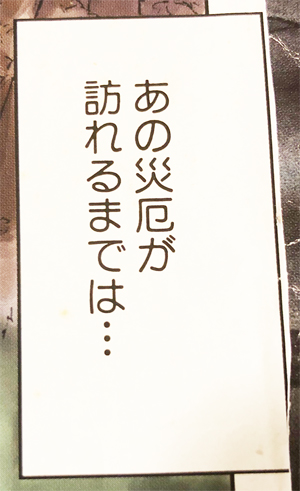 あの災厄が
訪れるまでは…